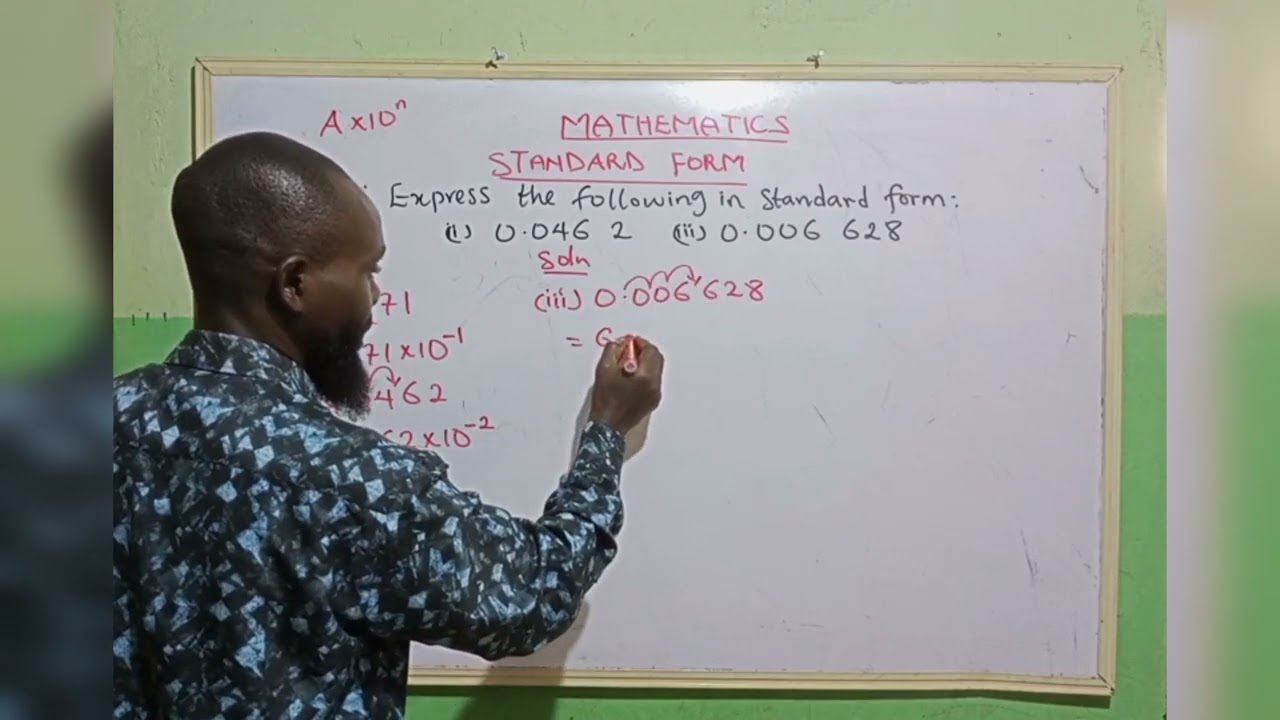 A x 10ⁿ
MATHEMATICS
STANDARD FORM
Express the following in standard form:
(i) 0.046 2 (ii) 0.006 628
Soln
71
71 x 10⁻¹
462
62 x 10⁻²
(iii) 0.006628
= 6